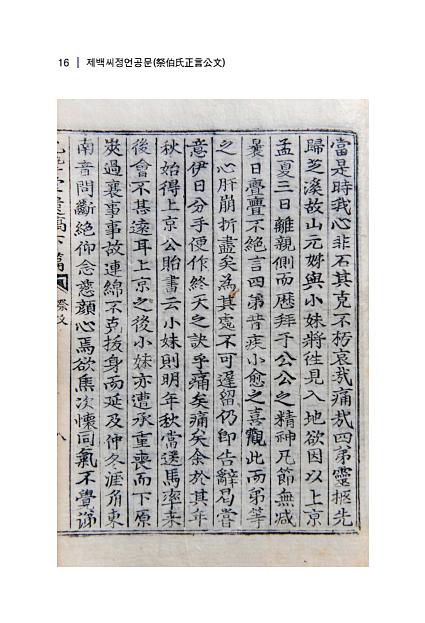 16 | 제백씨정언공문(祭伯氏正言公文)
當是時我心非石其克不朽哀哉痛哉四弟靈柩先
歸芝溪故山元姊與小妹將徃見入地欲因以上京
孟夏三日離親側而歷拜于公公之精神凡節無减
曩日亹亹不絶言四弟昔疾小愈之喜觀此而弟等
之心肝崩折盡矣為其處不可遲留仍卽告辭曷嘗
意伊日分手便作終天之訣乎痛矣痛矣余於其年
秋始得上京公胎書云小妹則明年秋當送馬率来
後會不甚遠耳上京之後小妹亦遭承重喪而下原
奘過襄事事故連綿不克拔身而延及仲冬涯角東
南音問斷絶仰念慈顔心焉欲焦次懷同氣不覺涕
下篇
祭文
八